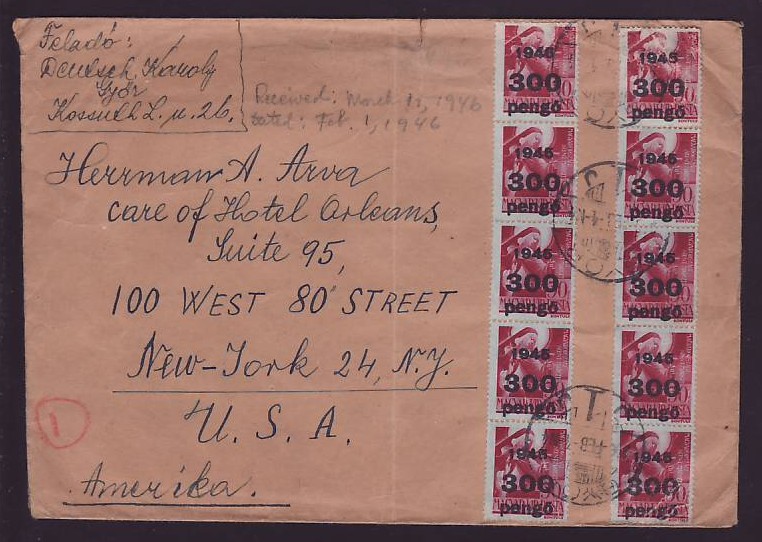 Feladó:
Deutsch Karoly
Győr
Kossuth L. u. 26.
Received: March 11, 1946
Dated: Feb. 1, 1946
Herrman A. Arva
care of Hotel Orleans,
Suite 95,
100 WEST 80 STREET
New-York 24, N.Y.
U. S. A.
Amerika.
1
1945
300
pengő
1945
300
pengő
1945
300
pengő
1945
300
pengő
1945
300
pengő
1945
300
pengő
1945
300
pengő
1945
300
pengő
1945
300
pengő
1945
300
pengő